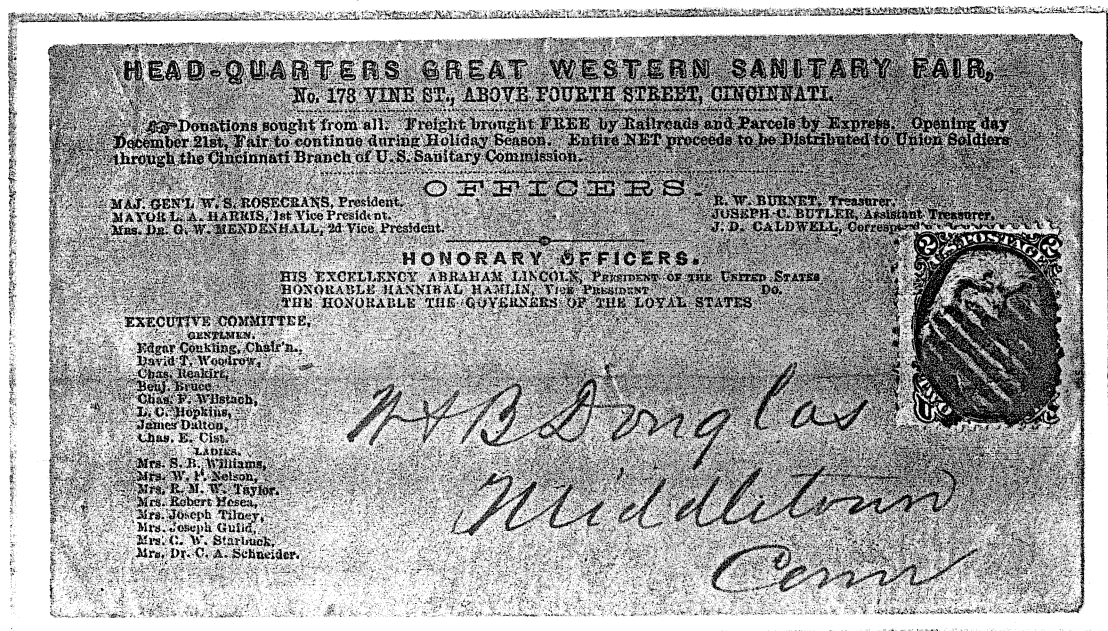 HEAD-QUARTERS GREAT WESTERN SANITARY FAIR,
No. 178 VINE ST., ABOVE FOURTH STREET, CINCINNATI.
☞Donations sought from all. Freight brought FREE by Railroads and Parcels by Express. Opening day
December 21st, Fair to continue during Holiday Season. Entire NET proceeds to be Distributed to Union Soldiers
through the Cincinnati Branch of U. S. Sanitary Commission.
OFFICERS.
MAJ. GEN'L W. S. ROSECRANS, President.
MAYOR L. A. HARRIS, 1st Vice President.
MRS. DR. G. W. MENDENHALL, 2d Vice President.
R. W. BURNET, Treasurer.
JOSEPH C. BUTLER, Assistant Treasurer.
J. D. CALDWELL,
HONORARY OFFICERS.
HIS EXCELLENCY ABRAHAM LINCOLN, PRESIDENT OF THE UNITED STATES
HONORABLE HANNIBAL HAMLIN, VICE PRESIDENT DO.
THE HONORABLE THE GOVERNERS OF THE LOYAL STATES
EXECUTIVE COMMITTEE,
GENTLMEN.
Edgar Conkling, Chair'n.,
David T. Woodrow,
Chas. Reakirt,
Benj. Bruce
Chas. F. Wilstach,
L. C. Hopkins,
James Dalton,
Chas. E. Cist.
LADIES.
Mrs. S. B. Williams,
Mrs. W. P. Nelson,
Mrs. R. M. W. Taylor.
Mrs. Robert Hosea,
Mrs. Joseph Tilney,
Mrs. Joseph Guild,
Mrs. C. W. Starbuck,
Mrs. Dr. C. A. Schneider.
POSTAGE
W & B Douglas
Middletown
Conn